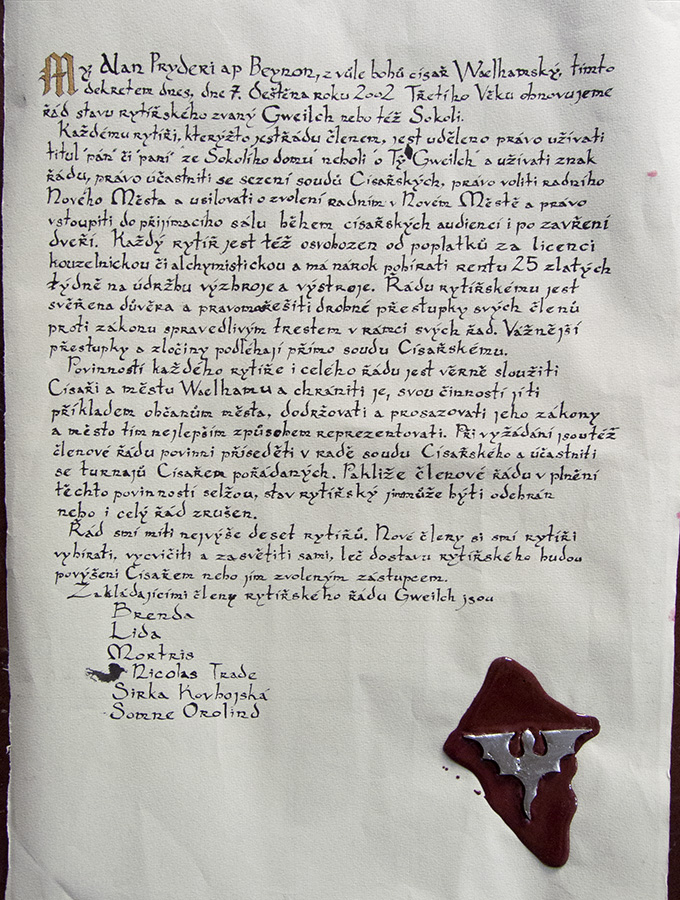 My, Alan Pryderi ap Beynon, z vůle bohů císař Waelhamský, tímto
dekretem dnes, dne 7. deštěna roku 2002 Třetího Věku obnovujeme
řád stavu rytířského zvaný Gweilch nebo též Sokoli.
Každému rytíři, kterýžto jest řádu členem, jest uděleno právo užívati
titul 'pán' či 'paní' ze Sokolího domu' neboli 'o Tŷ Gweilch' a užívati znak
řádu, právo účastniti se sezení soudů Císařských, právo voliti radního
Nového Města a usilovati o zvolení radním v Novém Městě a právo
vstoupiti do přijímacího sálu během císařských audiencí i po zavření
dveří. Každý rytíř jest též osvobozen od poplatků za licenci
kouzelnickou či alchymistickou a má nárok pobírati rentu 25 zlatých
týdně na údržbu výzbroje a výstroje. Řádu rytířskému jest
svěřena důvěra a pravomoc řešiti drobné přestupky svých členů
proti zákonu spravedlivým trestem v rámci svých řad. Vážnější
přestupky a zločiny podléhají přímo soudu Císařskému.
Povinností každého rytíře i celého řádu jest věrně sloužiti
Císaři a městu Waelhamu a chrániti je, svou činností jíti
příkladem občanům města, dodržovati a prosazovati jeho zákony
a město tím nejlepším způsobem reprezentovati. Při vyžádání jsou též
členové řádu povinni příseděti v radě soudu Císařského a účastniti
se turnajů Císařem pořádaných. Pakliže členové řádu v plnění
těchto povinností selžou, stav rytířský jim může býti odebrán
nebo i celý řád zrušen.
Řád smí míti nejvýše deset rytířů. Nové členy si smí rytíři
vybírati, vycvičiti a zasvětiti sami, leč do stavu rytířského budou
povýšeni Císařem nebo jím zvoleným zástupcem.
Zakládajícími členy rytířského řádu Gweilch jsou
Brenda
Lida
Mortris
Nicolas Trade
Sirka Kovbojská
Somne Orolind